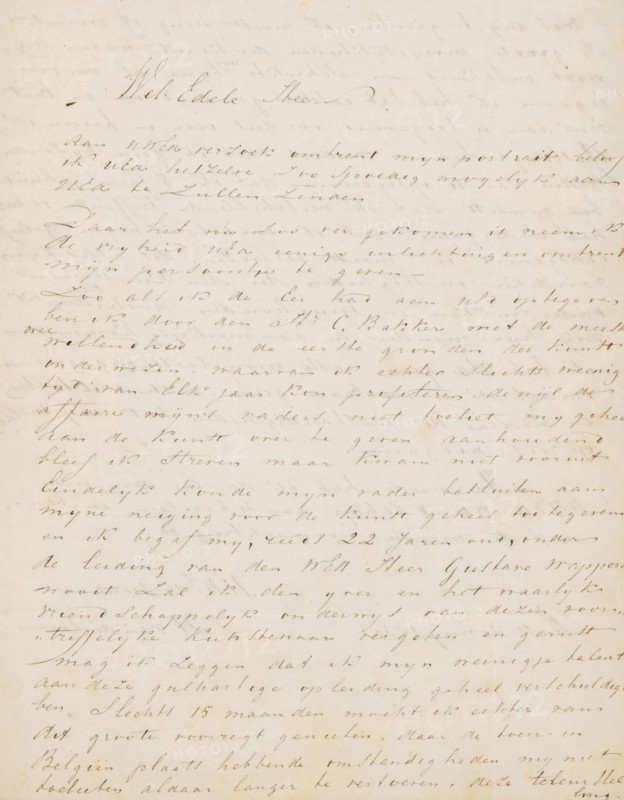 Wel Edele Heer
Aan UWEd verzoek omtrent mijn portrait beloof
ik UEd hetzelve zoo spoedig mogelijk aan
UEd te zullen zenden
Daar het nu zoo ver gekomen is neem ik
de vrijheid UEd eenige inlichtingen omtrent
mijn persoontje te geven –
Zoo als ik de Eer had aen UEd optegeven
ben ik door den Hr C. Bakker met de meeste
wel
willendheid in de eerste gronden der kunst
onderwezen. waarvan ik echter slechts weinig
tijd van Elk jaar kon profiteren. dewijl de
affaire mijns vaders niet toeliet my geheel
aan de kunst over te geven aanhoudend
bleef ik streven maar kwam niet vooruit
Eindelijk konde mijn vader besluiten aan
mijne neiging voor de kunst geheel toetegeven
en ik begaf my, reeds 22 Jaren oud, onder
de leiding van den WEd Heer Gustave Wappers
nooit zal ik den yver en het waarlijk
vriendschappelijk onderwys van dezen voor
treffelijke kunstenaar vergeten en gerust
mag ik zeggen dat ik mijn weinigje talent
aan deze gulhartige opleiding geheel verschuldigd
ben. Slechts 15 maanden mocht ik echter van
dit groote voorregt genieten. daar de toen in
Belgiën plaats hebbende omstandigheden my niet
toelieten aldaar langer te vertoeven. deze teleurstel
ling